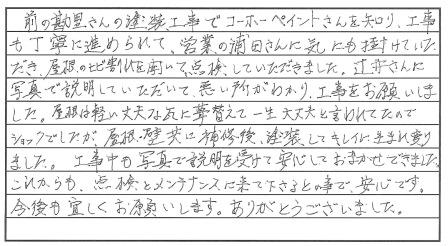 前の勘里さんの塗装工事でコーホーペイントさんを知り、工事
も丁寧に進められて、営業の浦田さんに気にも掛けていた
だき、屋根のヒビ割れを聞いて点検していただきました。辻井さんに
写真で説明していただいて、悪い所がわかり、工事をお願いしま
した。屋根は軽い丈夫な瓦に葺替えて一生大丈夫と言われてたので
ショックでしたが、屋根・壁共に補修後、塗装してキレイに生まれ変り
ました。工事中も写真で説明を受けて安心しておまかせできました。
これからも、点検とメンテナンスに来て下さるとの事で、安心です。
今後も宜しくお願いします。ありがとうございました。